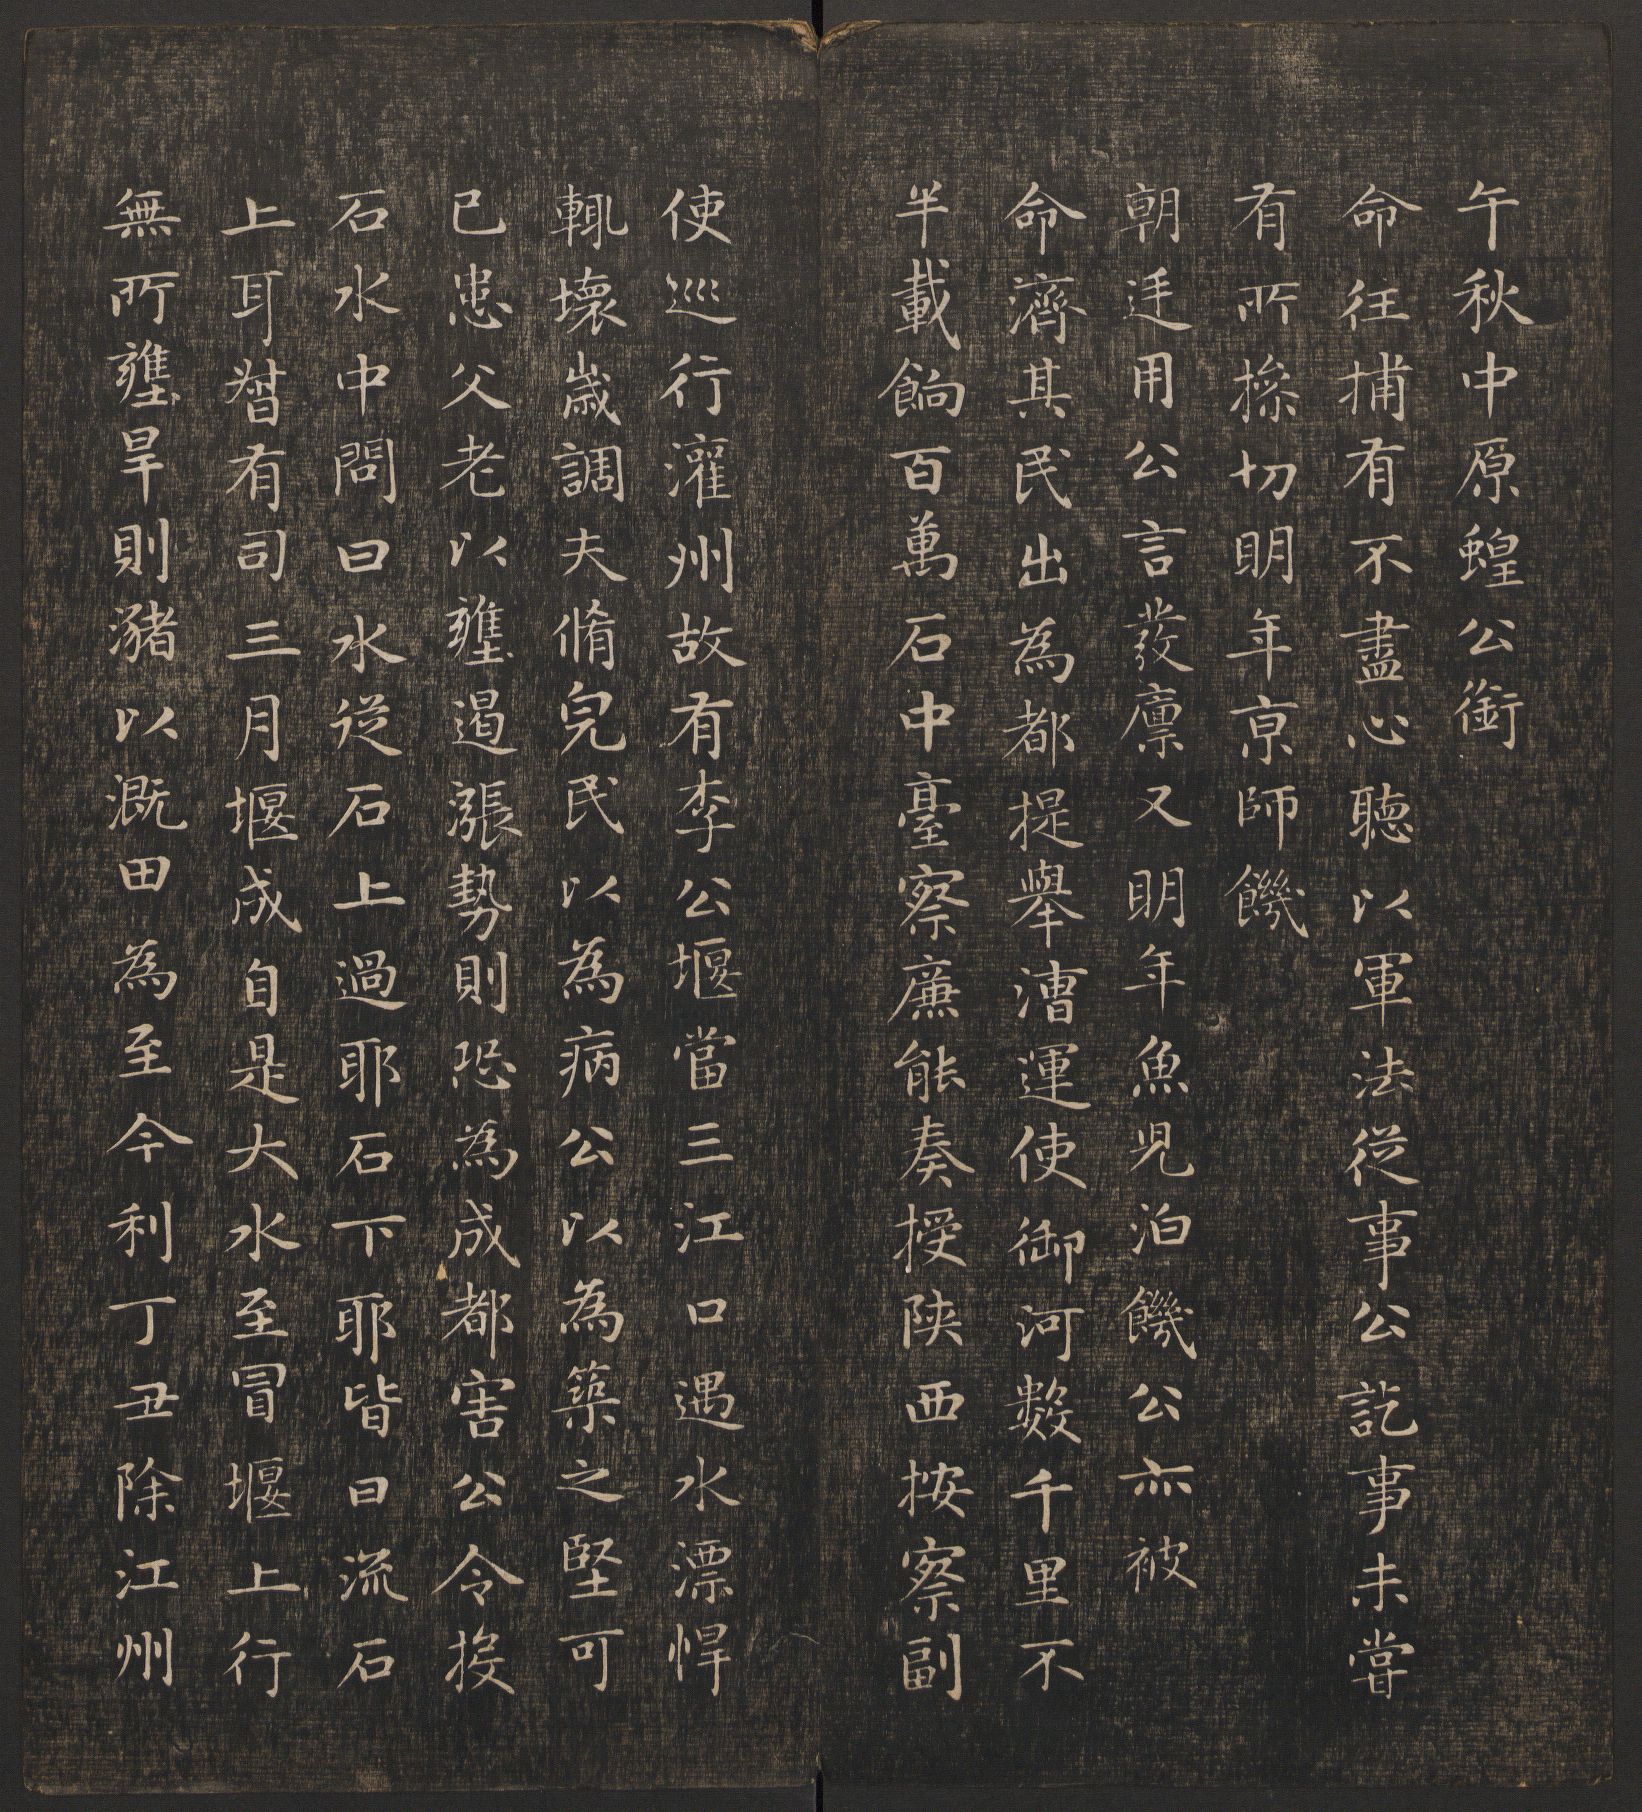 午秋中原蝗公銜
命往捕有不盡心聽以軍法從事公訖事未嘗
有所撓切明年京師饑
朝廷用公言發廩又明年魚児泊饑公亦被
命濟其民出為都提舉漕運使御河數千里不
半載餉百萬石中臺察廉能奏授陝西按察副
使巡行灌州故有李公堰當三江口遇水漂悍
輒壞歲調夫脩完民以為病公以為築之堅可
已患父老以壅遏漲勢則恐為成都害公令投
石水中問曰水從石上過耶石下耶皆曰流石
上耳督有司三月堰成自是大水至冒堰上行
無所壅旱則瀦以溉田為至今利丁丑除江州